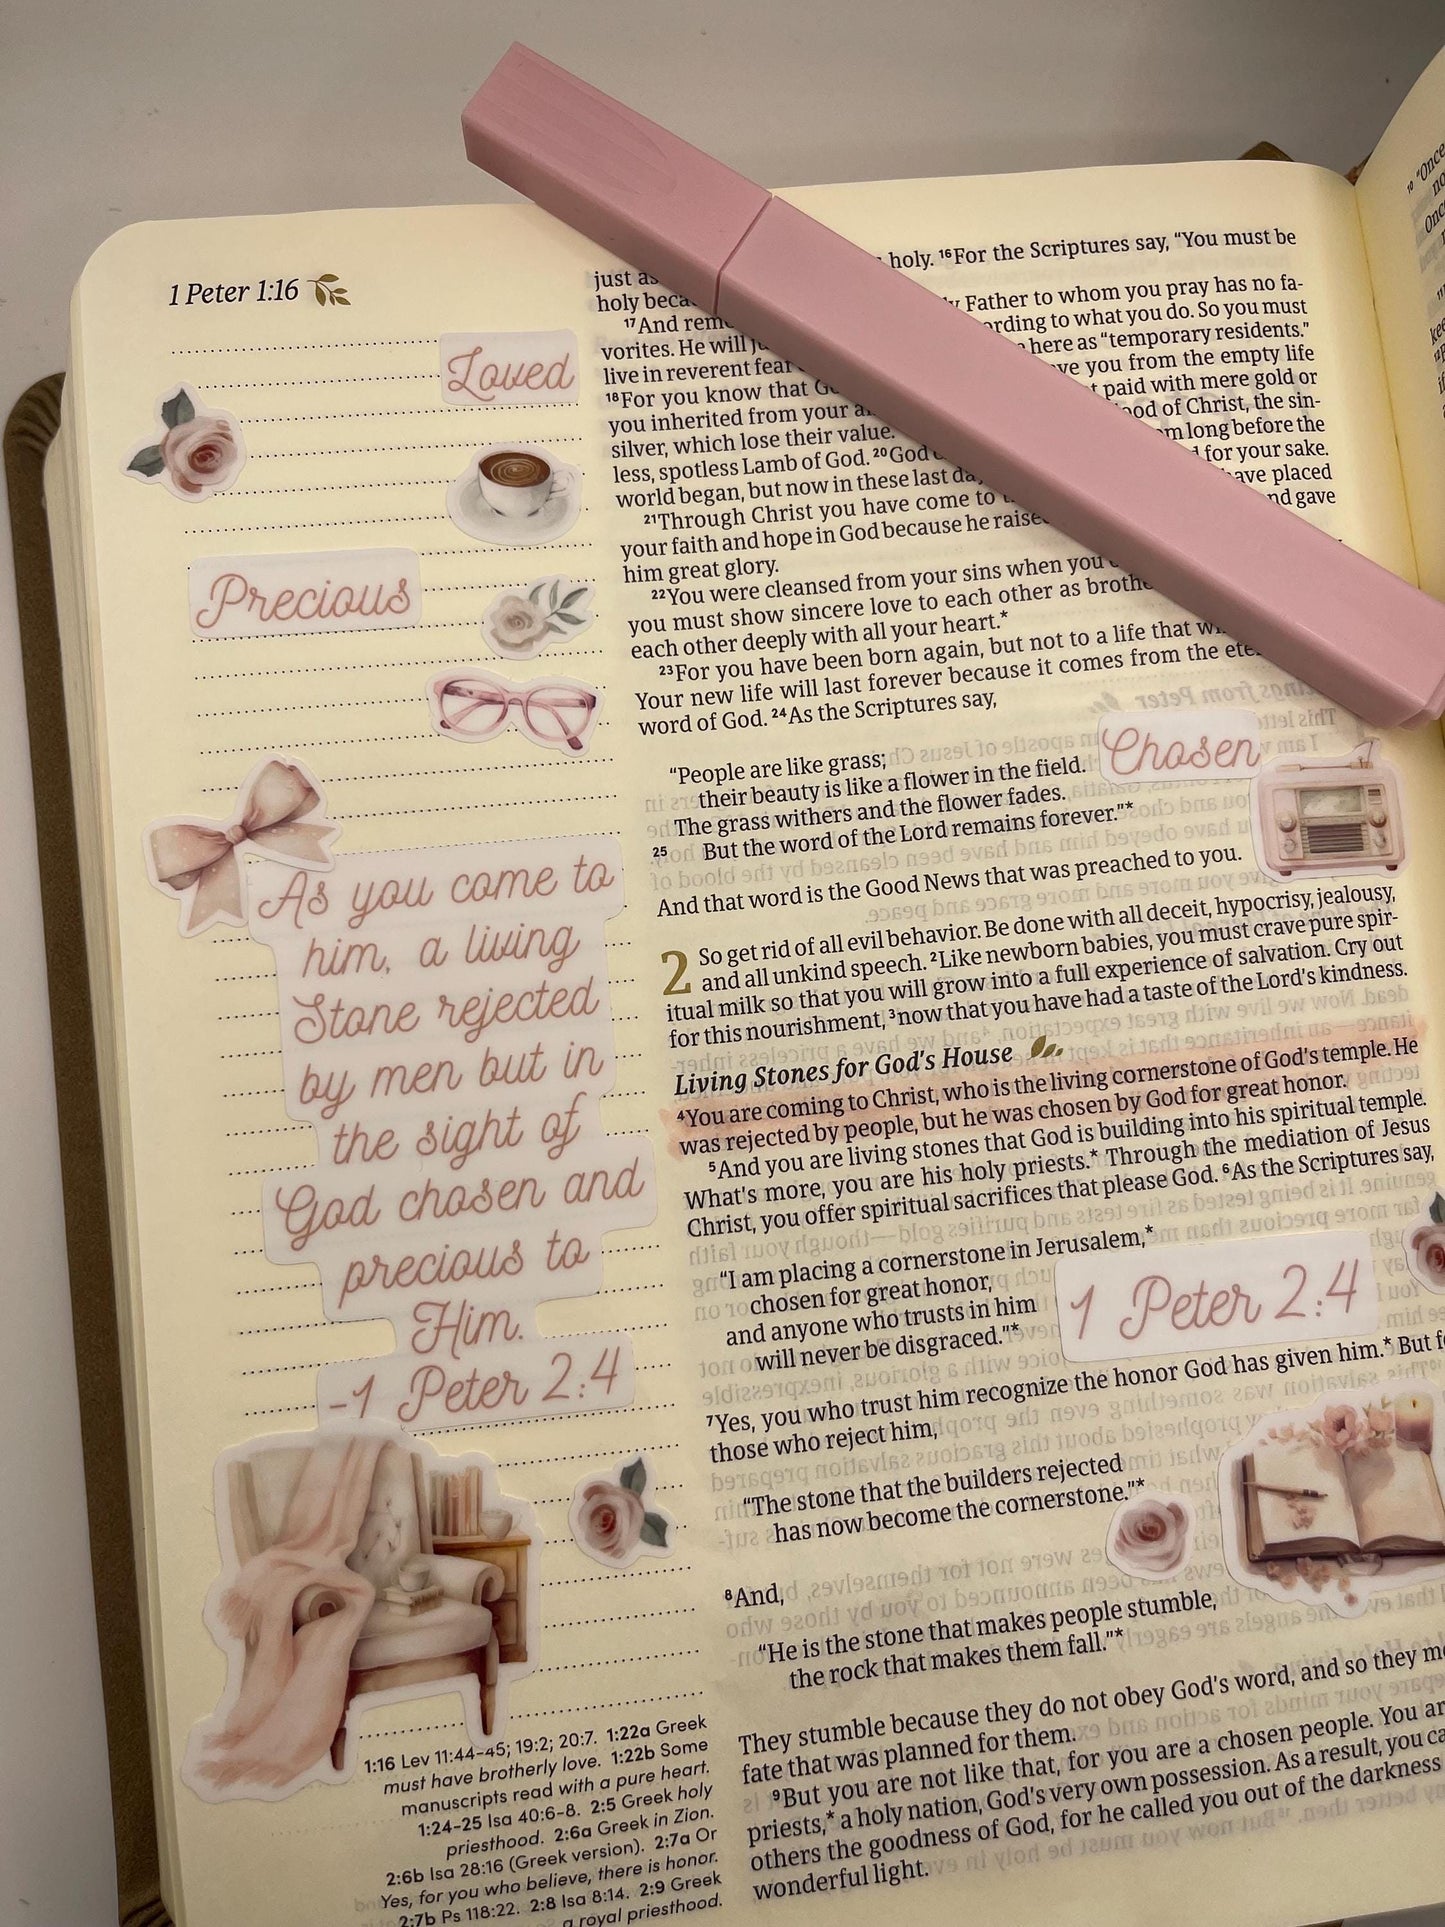 1 Peter 1:16
Loved
Precious
As you come to
him, a living
Stone rejected
by men but in
the sight of
God chosen and
precious to
Him.
-1 Peter 2:4
1:16 Lev 11:44-45; 19:2; 20:7. 1:22a Greek
must have brotherly love. 1:22b Some
manuscripts read with a pure heart.
1:24-25 Isa 40:6-8. 2:5 Greek holy
priesthood. 2:6a Greek in Zion.
2:6b Isa 28:16 (Greek version). 2:7a Or
Yes, for you who believe, there is honor.
2:7b Ps 118:22. 2:8 Isa 8:14. 2:9 Greek
a royal priesthood.
just as holy. 16For the Scriptures say, “You must be
holy
17And Father to whom you pray has no fa-
vorites. He will to what you do. So you must
live in reverent fear here as “temporary residents.”
18For you know that you from the empty life
you inherited from your paid with mere gold or
silver, which lose their value. of Christ, the sin-
less, spotless Lamb of God. 20God long before the
world began, but now in these last for your sake.
21Through Christ you have come to have placed
your faith and hope in God because he and gave
him great glory.
22You were cleansed from your sins when you
you must show sincere love to each other as
each other deeply with all your heart.*
23For you have been born again, but not to a life that
Your new life will last forever because it comes from the
word of God. 24As the Scriptures say,
“People are like grass;
their beauty is like a flower in the field.
The grass withers and the flower fades.
25 But the word of the Lord remains forever.”*
And that word is the Good News that was preached to you.
Chosen
2 So get rid of all evil behavior. Be done with all deceit, hypocrisy, jealousy,
and all unkind speech. 2Like newborn babies, you must crave pure spir-
itual milk so that you will grow into a full experience of salvation. Cry out
for this nourishment, 3now that you have had a taste of the Lord's kindness.
Living Stones for God's House
4You are coming to Christ, who is the living cornerstone of God's temple. He
was rejected by people, but he was chosen by God for great honor.
5And you are living stones that God is building into his spiritual temple.
What's more, you are his holy priests.* Through the mediation of Jesus
Christ, you offer spiritual sacrifices that please God. 6As the Scriptures say,
“I am placing a cornerstone in Jerusalem,*
chosen for great honor,
and anyone who trusts in him
will never be disgraced.”*
1 Peter 2:4
7Yes, you who trust him recognize the honor God has given him.* But
those who reject him,
“The stone that the builders rejected
has now become the cornerstone.”*
8And,
“He is the stone that makes people stumble,
the rock that makes them fall.”*
They stumble because they do not obey God's word, and so they
fate that was planned for them.
9But you are not like that, for you are a chosen people. You
priests,* a holy nation, God's very own possession. As a result, you
others the goodness of God, for he called you out of the darkness
wonderful light.